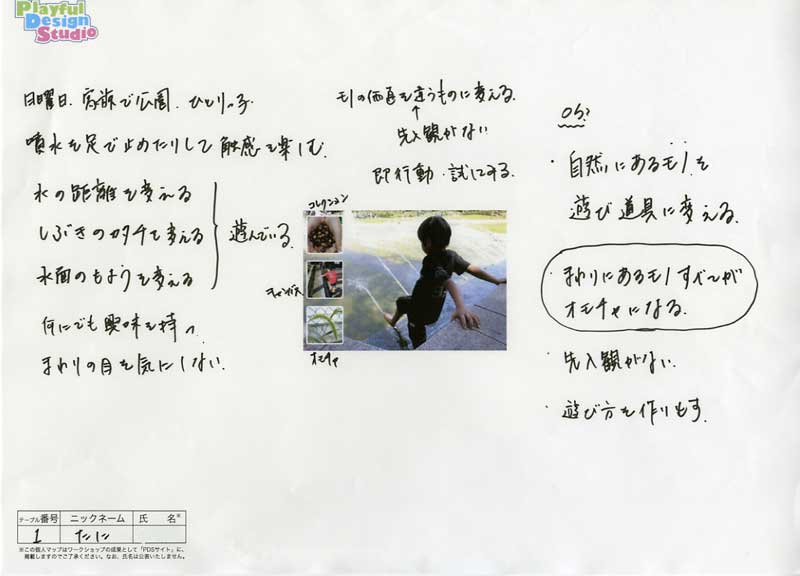 Playful
Design
Studio
日曜日、家族で公園、ひとりっ子
噴水を足で止めたりして触感を楽しむ。
水の距離を変える
しぶきのカタチを変える
水面のもようを変える
遊んでいる。
何にでも興味を持つ
まわりの目を気にしない。
モノの価値を違うものに変える。
↑
先入観がない
即行動・試してみる。
コレクション
キャンバス
オモチャ
・自然にあるモノを
遊び道具に変える。
まわりにあるモノすべてが
オモチャになる。
・先入観がない。
・遊び方を作り出す。
テーブル番号 ニックネーム 氏 名※
1 たに
※この個人マップはワークショップの成果として「PDSサイト」に、
掲載しますのでご了承ください。なお、氏名は公表いたしません。